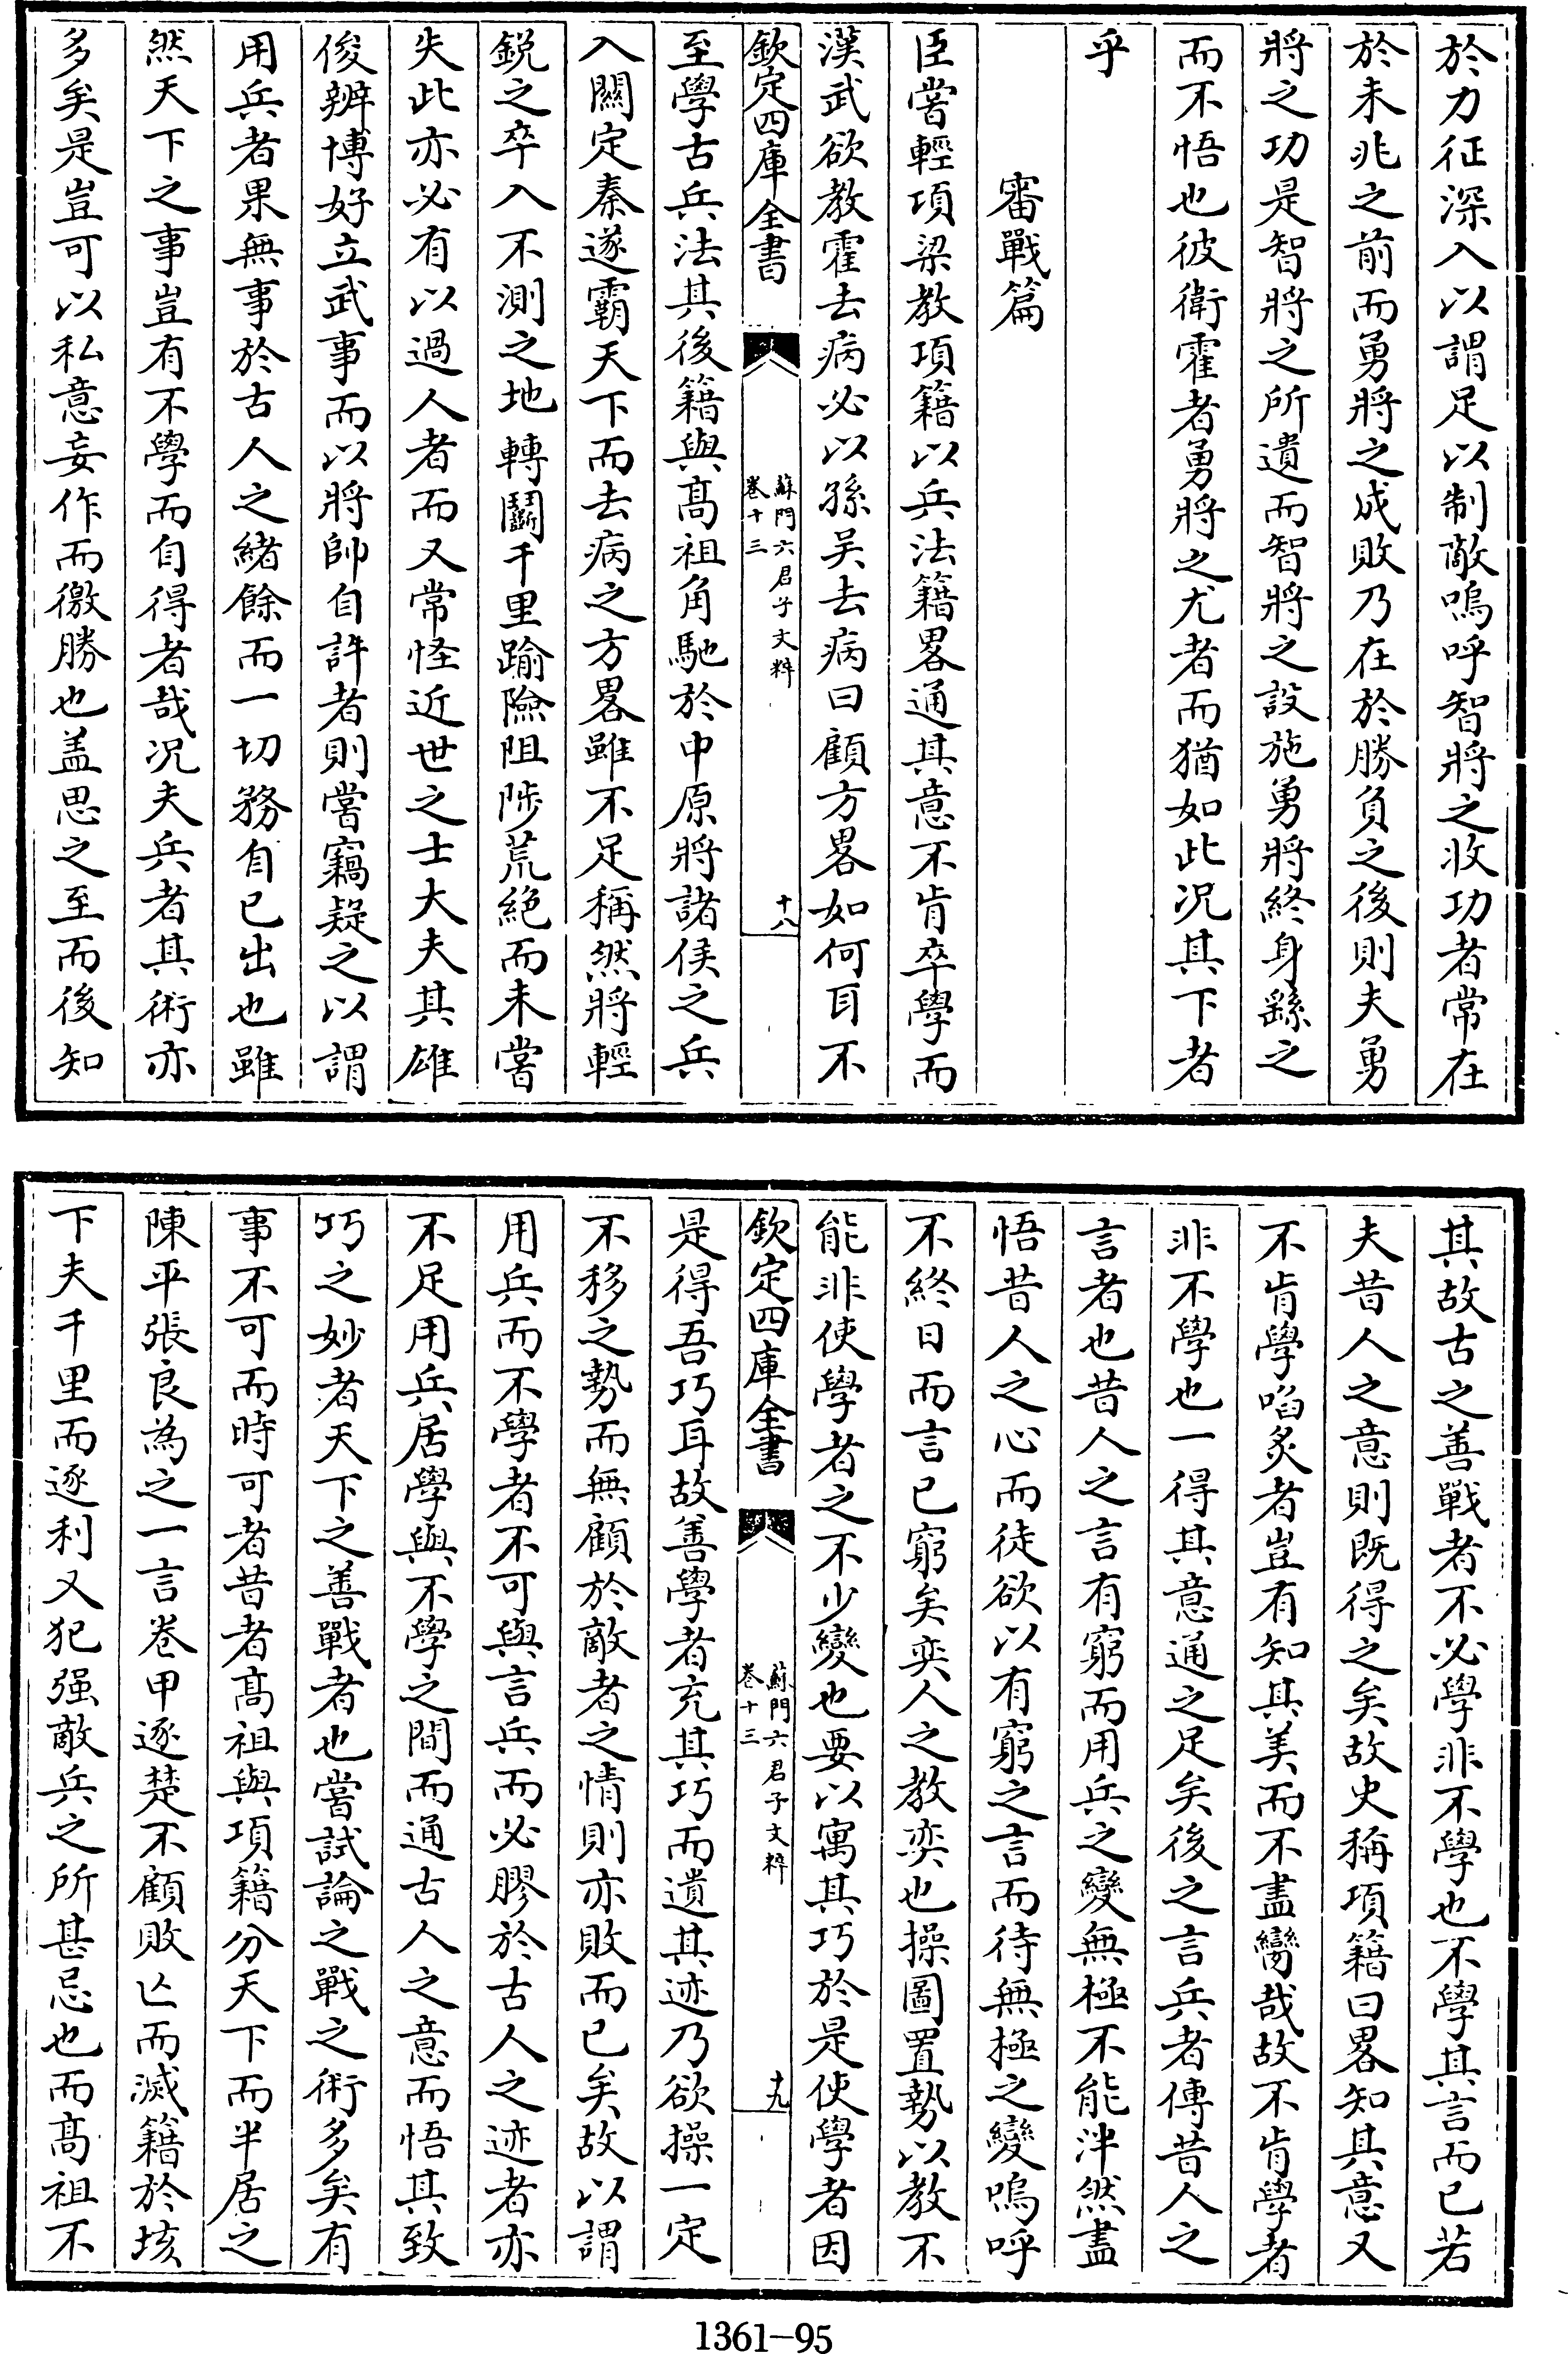 於力征深入以謂足以制敵嗚呼智將之收功者常在
於未兆之前而勇將之成敗乃在於勝負之後則夫勇
將之功是智將之所遺而智將之設施勇將終身繇之
而不悟也彼衛霍者勇將之尤者而猶如此况其下者
乎
審戰篇
臣嘗輕項梁教項籍以兵法籍畧通其意不肯卒學而
漢武欲教霍去病必以孫吴去病曰顧方畧如何耳不
欽定四庫全書
蘇門六君子文粹
卷十三
十八
至學古兵法其後籍與髙祖角馳於中原將諸侯之兵
入關定秦遂霸天下而去病之方畧雖不足稱然將輕
鋭之卒入不測之地轉鬭千里踰險阻陟荒絶而未嘗
失此亦必有以過人者而又常怪近世之士大夫其雄
俊辨博好立武事而以將帥自許者則嘗竊疑之以謂
用兵者果無事於古人之緒餘而一切務自已出也雖
然天下之事豈有不學而自得者哉况夫兵者其術亦
多矣是豈可以私意妄作而徼勝也盖思之至而後知
其故古之善戰者不必學非不學也不學其言而已若
夫昔人之意則既得之矣故史稱項籍曰畧知其意又
不肯學啗炙者豈有知其美而不盡臠哉故不肯學者
非不學也一得其意通之足矣後之言兵者傳昔人之
言者也昔人之言有窮而用兵之變無極不能泮然盡
悟昔人之心而徒欲以有窮之言而待無極之變嗚呼
不終日而言已窮矣奕人之教奕也操圖置勢以教不
能非使學者之不少變也要以寓其巧於是使學者因
欽定四庫全書
蘇門六君子文粹
卷十三
十九
是得吾巧耳故善學者充其巧而遺其迹乃欲操一定
不移之勢而無顧於敵者之情則亦敗而已矣故以謂
用兵而不學者不可與言兵而必膠於古人之迹者亦
不足用兵居學與不學之間而通古人之意而悟其致
巧之妙者天下之善戰者也嘗試論之戰之術多矣有
事不可而時可者昔者髙祖與項籍分天下而半居之
陳平張良為之一言卷甲逐楚不顧敗亡而滅籍於垓
下夫千里而逐利又犯强敵兵之所甚忌也而髙祖不
1361-95